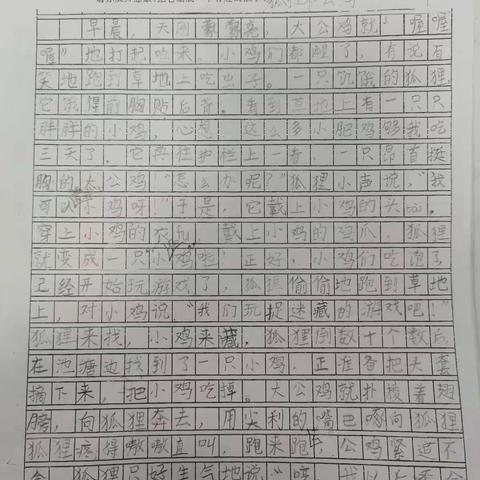 早晨，天刚蒙蒙亮，大公鸡就"喔喔
喔"地打起鸣来。小鸡们都醒了，有说有
笑地跑到草地上吃虫子。一只饥饿的狐狸，
它饿得前胸贴后背。看到草地上有一只只
胖胖的小鸡，心想：这么多小肥鸡够我吃
三天了。它再往护栏上一看，一只昂首挺
胸的大公鸡！"怎么办呢？"狐狸小声说，"我
可以 小鸡呀！"于是，它戴上小鸡的头tào，
穿上小鸡的衣服，戴上小鸡的鸡爪，狐狸
就变成一只"小鸡"啦！正好，小鸡们吃饱了，
已经开始玩游戏了，狐狸偷偷地跑到草地
上，对小鸡说："我们玩捉迷藏的游戏吧！"
狐狸来找，小鸡来藏，狐狸倒数十个数后，
在池塘边找到了一只小鸡，正准备把头套
摘下来，一把小鸡吃掉。大公鸡就扑棱着翅
膀，向狐狸奔去，用尖利的嘴巴啄向狐狸，
狐狸疼得嗷嗷直叫，跑来跑 ，公鸡紧追不
舍，狐狸只好生气地说：